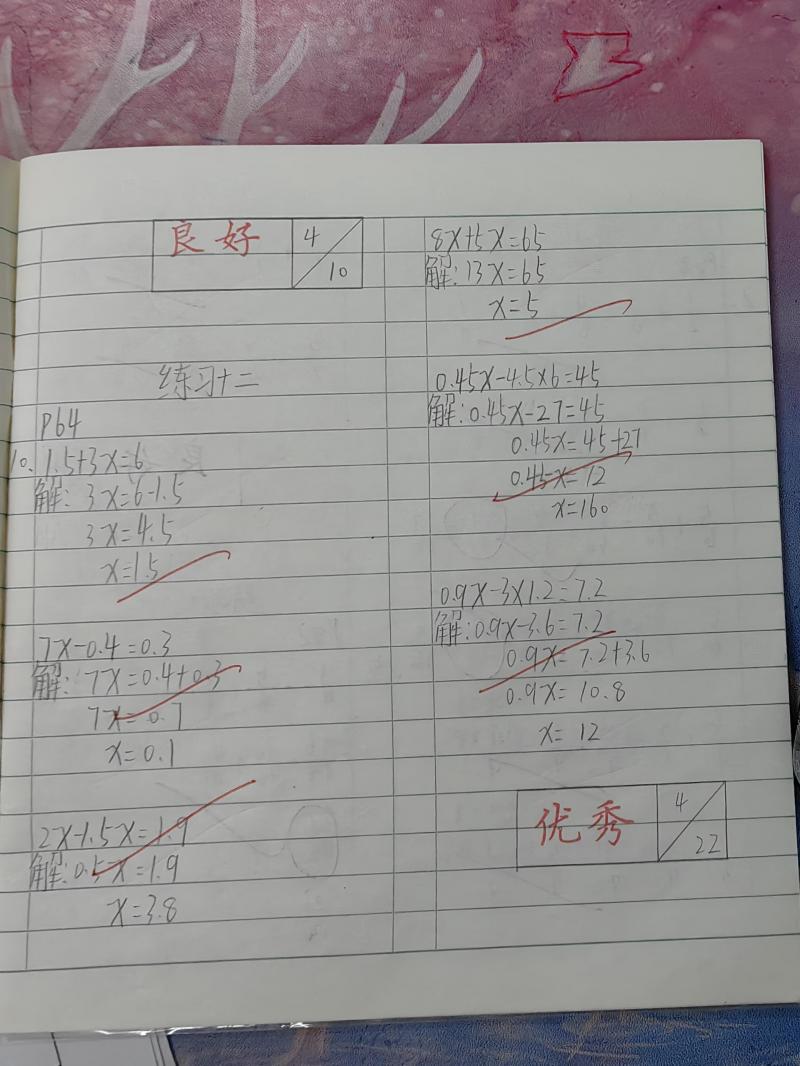 良好 4/10
练习十二
P64
10. 1.5+3x=6
解: 3x=6-1.5
3x=4.5
x=1.5
7x-0.4=0.3
解: 7x=0.4+0.3
7x=0.7
x=0.1
2x-1.5x=1.9
解:0.5x=1.9
x=3.8
8x+5x=65
解:13x=65
x=5
0.45x-4.5×6=45
解:0.45x-27=45
0.45x=45+27
0.45x=12
x=160
0.9x-3×1.2=7.2
解:0.9x-3.6=7.2
0.9x=7.2+3.6
0.9x=10.8
x=12
优秀 4/22